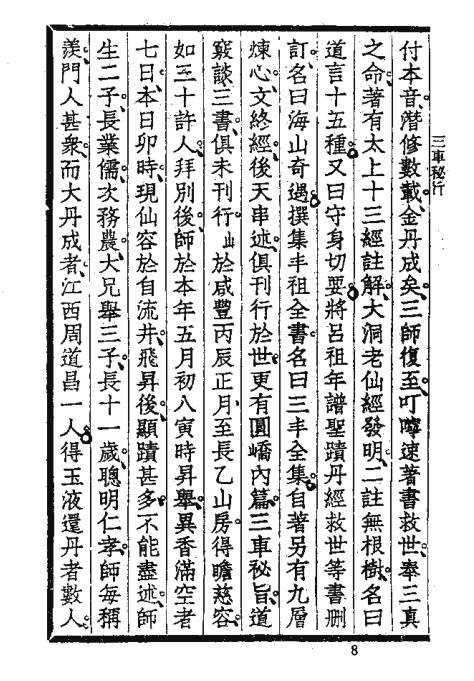 三車秘行
付本音、潛修數載、金丹成矣、三師復至、叮嚀速著書救世、奉三真
之命、著有太上十三經註解、大洞老仙經發明、二註無根樹、名曰
道言十五種、又曰守身切要、將呂祖年譜聖蹟丹經救世等書刪
訂、名曰海山奇遇、撰集丰祖全書、名曰三丰全集、自著另有九層
煉心、文終經、後天串述、俱刊行於世、更有圓嶠內篇、三車秘旨、道
竅談三書、俱未刊行。山於咸豐丙辰正月、至長乙山房、得瞻慈容。
如三十許人、拜別後、師於本年五月初八寅時昇舉、異香滿空者
七日、本日卯時、現仙容於自流井、飛昇後、顯蹟甚多、不能盡述、師
生二子、長業儒、次務農、大兄舉三子、長十一歲、聰明仁孝、師每稱
羨、門人甚衆、而大丹成者、江西周道昌一人、得玉液還丹者數人、
8